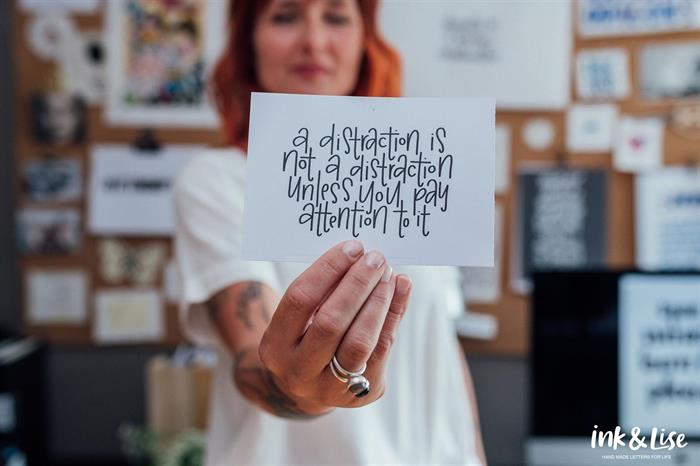 a distraction is
not a distraction
unless you pay
attention to it
ink & Lise
HAND MADE LETTERS FOR LIFE